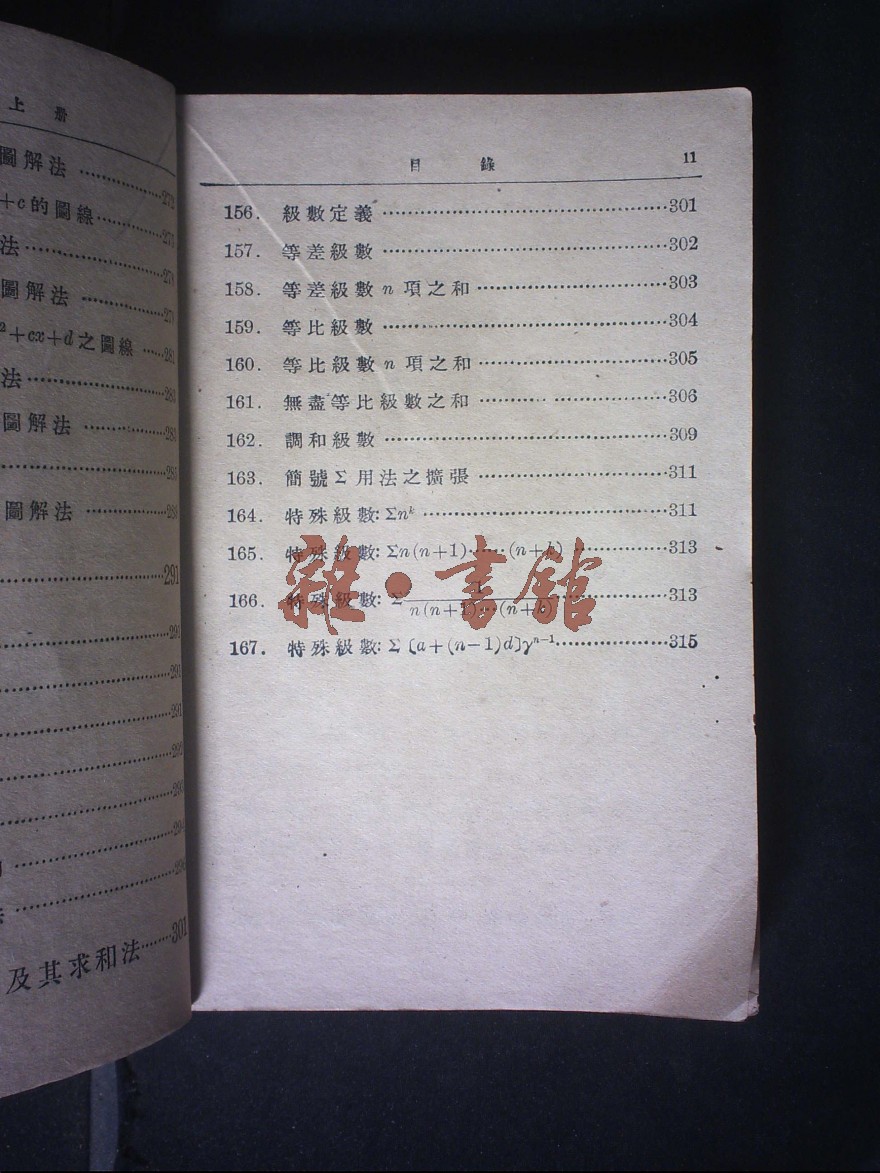 上 册
圖解法 ……272
+c的圖線……
法……278
圖解法……
²+cx+d之圖線……
法……
圖解法……
……
圖解法……
……291
……291
……291
……291
……
……
……
……
……
及其求和法……301
目 錄 11
156. 級數定義……301
157. 等差級數……302
158. 等差級數 n 項之和……303
159. 等比級數……304
160. 等比級數 n 項之和……305
161. 無盡等比級數之和……306
162. 調和級數……309
163. 簡號 Σ 用法之擴張……311
164. 特殊級數: Σnᵏ……311
165. 特殊級數: Σn(n+1)……(n+k)……313
166. 特殊級數: Σ 1/n(n+1)…(n+k)……313
167. 特殊級數: Σ〔a+(n−1)d〕γⁿ⁻¹……315
雜·書館